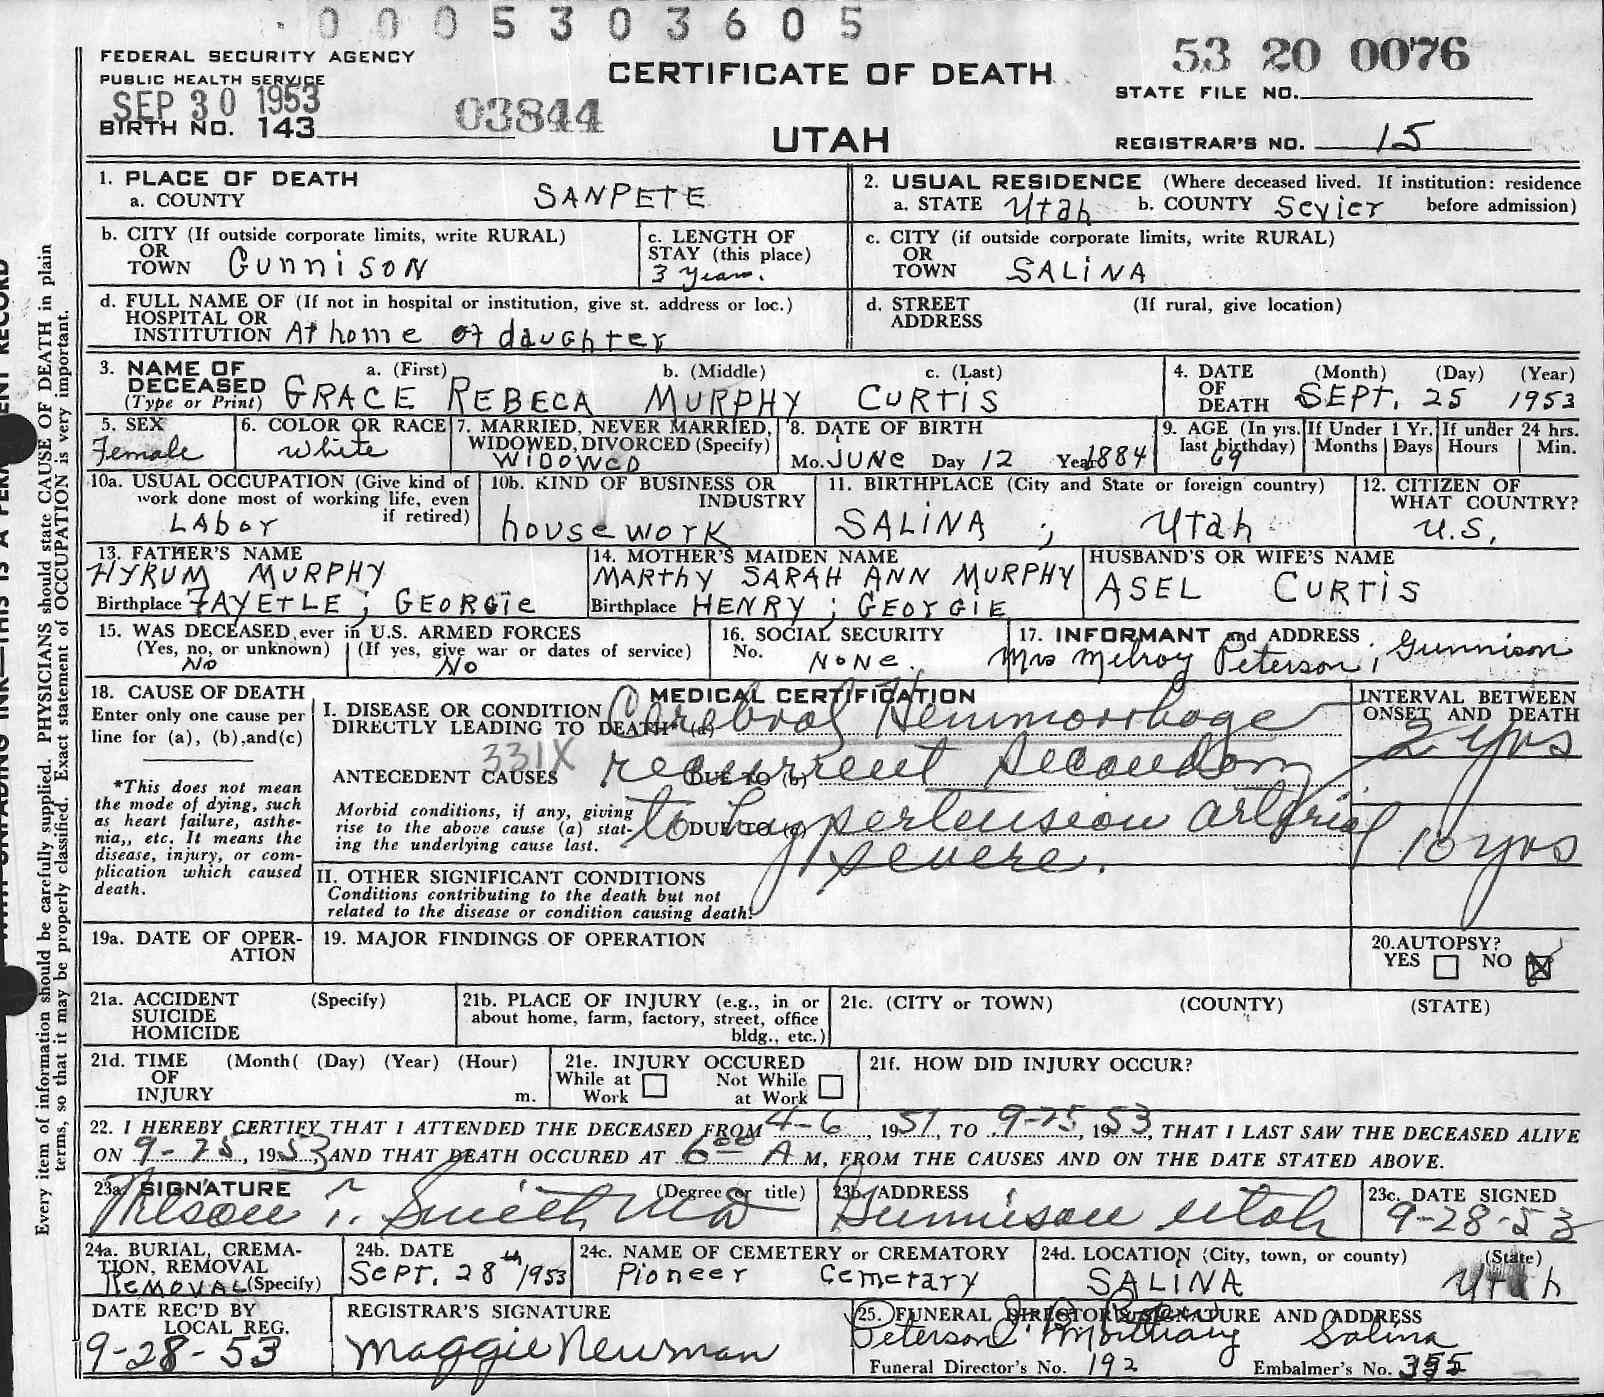 0005303605
FEDERAL SECURITY AGENCY
PUBLIC HEALTH SERVICE
SEP 30 1953
BIRTH NO. 143
03844
CERTIFICATE OF DEATH
UTAH
53 20 0076
STATE FILE NO.
REGISTRAR'S NO. 15
1. PLACE OF DEATH
a. COUNTY SANPETE
2. USUAL RESIDENCE (Where deceased lived. If institution: residence
a. STATE Utah b. COUNTY Sevier before admission)
b. CITY (If outside corporate limits, write RURAL)
OR
TOWN Gunnison
c. LENGTH OF
STAY (this place)
3 years.
c. CITY (if outside corporate limits, write RURAL)
OR
TOWN SALINA
d. FULL NAME OF (If not in hospital or institution, give st. address or loc.)
HOSPITAL OR
INSTITUTION At home of daughter
d. STREET (If rural, give location)
ADDRESS
3. NAME OF a. (First) b. (Middle) c. (Last)
DECEASED
(Type or Print) GRACE REBECA MURPHY CURTIS
4. DATE (Month) (Day) (Year)
OF
DEATH SEPT. 25 1953
5. SEX
Female
6. COLOR OR RACE
white
7. MARRIED, NEVER MARRIED,
WIDOWED, DIVORCED (Specify)
WIDOWED
8. DATE OF BIRTH
Mo. JUNE Day 12 Year 1884
9. AGE (In yrs.
last birthday)
69
If Under 1 Yr.
Months Days
If under 24 hrs.
Hours Min.
10a. USUAL OCCUPATION (Give kind of
work done most of working life, even
if retired)
LAbor
10b. KIND OF BUSINESS OR
INDUSTRY
housework
11. BIRTHPLACE (City and State or foreign country)
SALINA ; Utah
12. CITIZEN OF
WHAT COUNTRY?
U.S.
13. FATHER'S NAME
HYRUM MURPHY
Birthplace FAYETLE ; GEORGIE
14. MOTHER'S MAIDEN NAME
MARTHY SARAH ANN MURPHY
Birthplace HENRY ; GEORGIE
HUSBAND'S OR WIFE'S NAME
ASEL CURTIS
15. WAS DECEASED ever in U.S. ARMED FORCES
(Yes, no, or unknown) (If yes, give war or dates of service)
No No
16. SOCIAL SECURITY
No. NONE.
17. INFORMANT and ADDRESS
Mrs Melroy Peterson ; Gunnison
18. CAUSE OF DEATH
Enter only one cause per
line for (a), (b), and (c)
*This does not mean
the mode of dying, such
as heart failure, asthe-
nia,, etc. It means the
disease, injury, or com-
plication which caused
death.
MEDICAL CERTIFICATION
I. DISEASE OR CONDITION
DIRECTLY LEADING TO DEATH* (a) Cerebral Hemmorrhage
331X
ANTECEDENT CAUSES DUE TO (b) recurrent secondary
Morbid conditions, if any, giving
rise to the above cause (a) stat-
ing the underlying cause last.
DUE TO (c) to hypertension arterial
severe.
INTERVAL BETWEEN
ONSET AND DEATH
2 yrs
10 yrs
II. OTHER SIGNIFICANT CONDITIONS
Conditions contributing to the death but not
related to the disease or condition causing death.
19a. DATE OF OPER-
ATION
19. MAJOR FINDINGS OF OPERATION
20. AUTOPSY?
YES NO
21a. ACCIDENT (Specify)
SUICIDE
HOMICIDE
21b. PLACE OF INJURY (e.g., in or
about home, farm, factory, street, office
bldg., etc.)
21c. (CITY or TOWN) (COUNTY) (STATE)
21d. TIME (Month( (Day) (Year) (Hour)
OF
INJURY m.
21e. INJURY OCCURED
While at Not While
Work at Work
21f. HOW DID INJURY OCCUR?
22. I HEREBY CERTIFY THAT I ATTENDED THE DECEASED FROM 4-6, 1951, TO 9-25, 1953, THAT I LAST SAW THE DECEASED ALIVE
ON 9-25, 1953, AND THAT DEATH OCCURED AT 6 00 A M, FROM THE CAUSES AND ON THE DATE STATED ABOVE.
23a. SIGNATURE (Degree or title)
Smith MD
23b. ADDRESS
Gunnison Utah
23c. DATE SIGNED
9-28-53
24a. BURIAL, CREMA-
TION, REMOVAL
REMOVAL (Specify)
24b. DATE
Sept. 28th 1953
24c. NAME OF CEMETERY OR CREMATORY
Pioneer Cemetary
24d. LOCATION (City, town, or county) (State)
SALINA Utah
DATE REC'D BY
LOCAL REG.
9-28-53
REGISTRAR'S SIGNATURE
Maggie Newman
25. FUNERAL DIRECTOR'S SIGNATURE AND ADDRESS
Peterson Mortuary Salina
Funeral Director's No. 192 Embalmer's No.
Every item of information should be carefully supplied. PHYSICIANS should state CAUSE OF DEATH in plain
terms, so that it may be properly classified. Exact statement of OCCUPATION is very important.